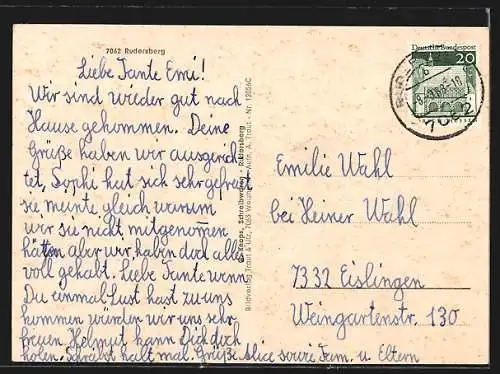 7062 Rudersberg
Liebe Tante Emi!
Wir sind wieder gut nach
Hause gekommen. Deine
Grüße haben wir ausgerich
tet, Sophi hat sich sehr gefreut
sie meinte gleich warum
wir sie nicht mitgenomen
hätten aber wir haben doch alles
voll gehabt. Liebe Tante wenn
Du einmal Lust hast zu uns
kommen würden wir uns sehr
freuen Helmut kann Dich doch
holen. Schreibst halt mal. Grüße Alice sowie Fam. u. Eltern
Knopp, Schreibwaren, Rudersberg
Bildverlag Traut & Utz, 7065 Aufn. A. Traut - Nr. 12656C
Deutsche Bundespost
20
7062
Emilie Wahl
bei Heiner Wahl
7332 Eislingen
Weingartenstr. 130